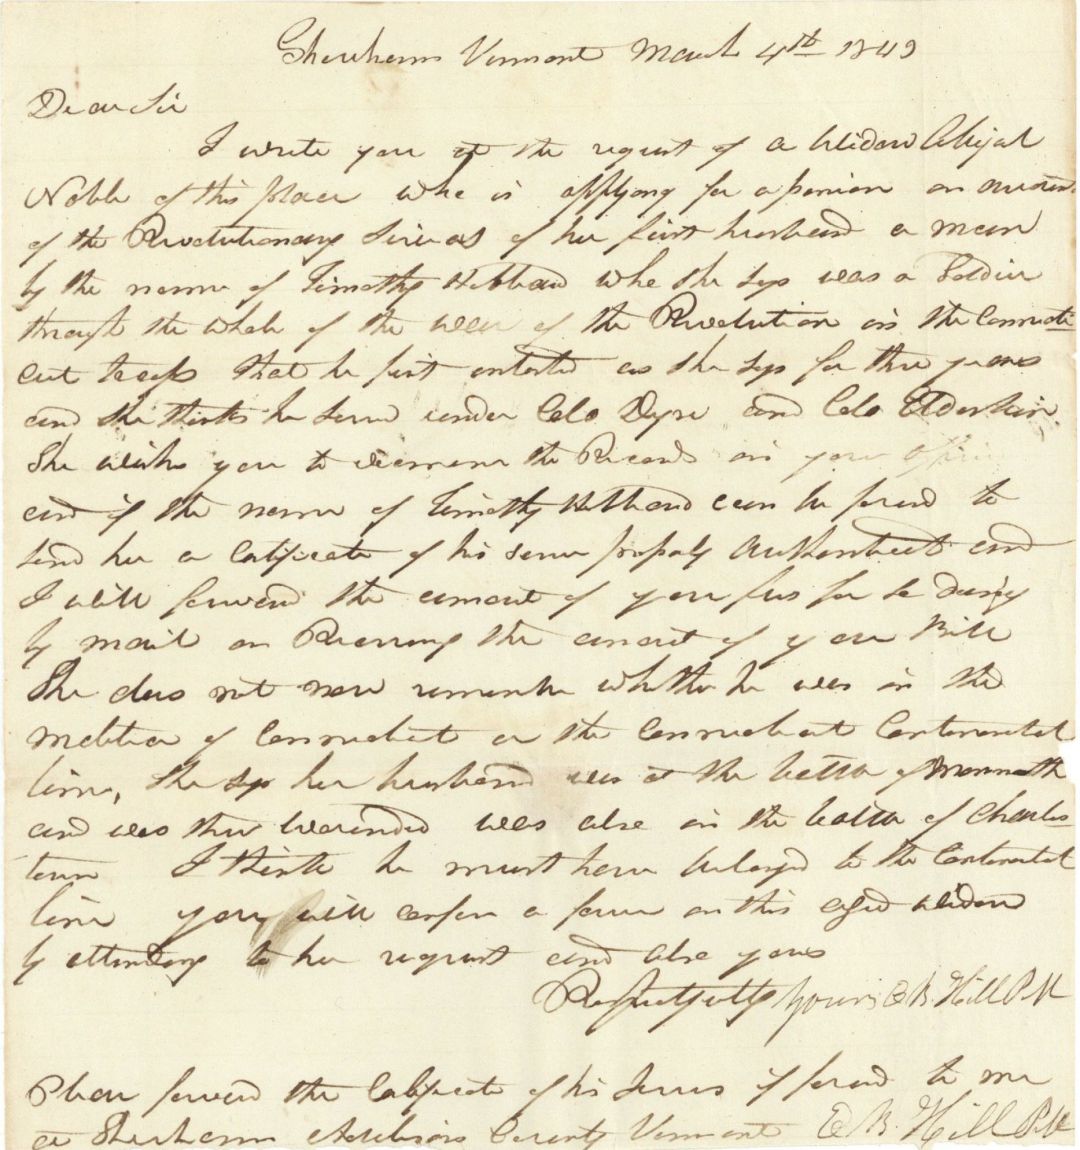 Shoreham Vermont March 4th 1843
Dear Sir
I write you at the request of a Widow Abijal
Noble of this place who is applying for a pension on account
of the Revolutionary Services of her first husband a man
by the name of Timothy Hibbard who she says was a Soldier
through the whole of the war of the Revolution in the Connecti
cut troops that he first enlisted as she says for three years
and she thinks he served under Colo Dyre and Colo Elderkin
She wishes you to examine the Records in your office
and if the name of Timothy Hibbard can be found to
send her a Certificate of his service properly Authenticat and
I will forward the amount of your fees for so doing
by mail on Receiving the amount of your Bill
She does not now remember whether he was in the
Melitia of Connecticut or the Connecticut Continental
line, She says her husband was at the battle of Monmouth
and was there wounded was also in the battle of Charles
town I think he must have belonged to the Continental
line you will confer a favour on this aged widow
by attending to her request and also yours
Respectfully Yours E B. Hill P M
Please forward the Certificate of his Service if found to me
at Shoreham Addison County Vermont E B. Hill P M